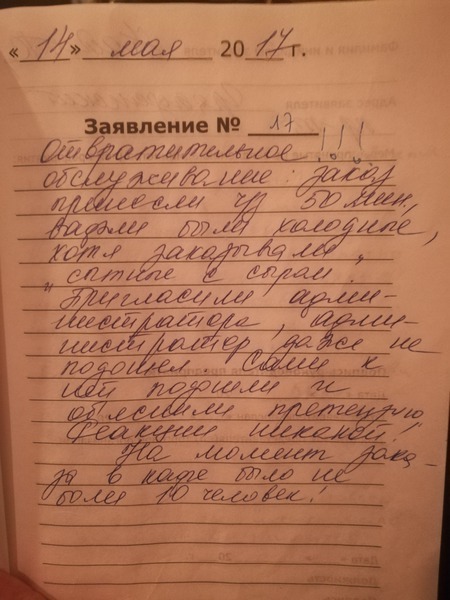 « 14 » мая 2017 г.
Заявление № 17
Отвратительное !!!
обслуживание: заказ
принесли чз 50 мин,
вафли были холодные,
хотя заказывали „
„ сытные с сыром.
Пригласили адми-
нистратора, адми-
нистратор даже не
подошел. Сами к
ней подошли и
объяснили претензию
Реакции никакой!
На момент зака-
за в кафе было не
более 10 человек!